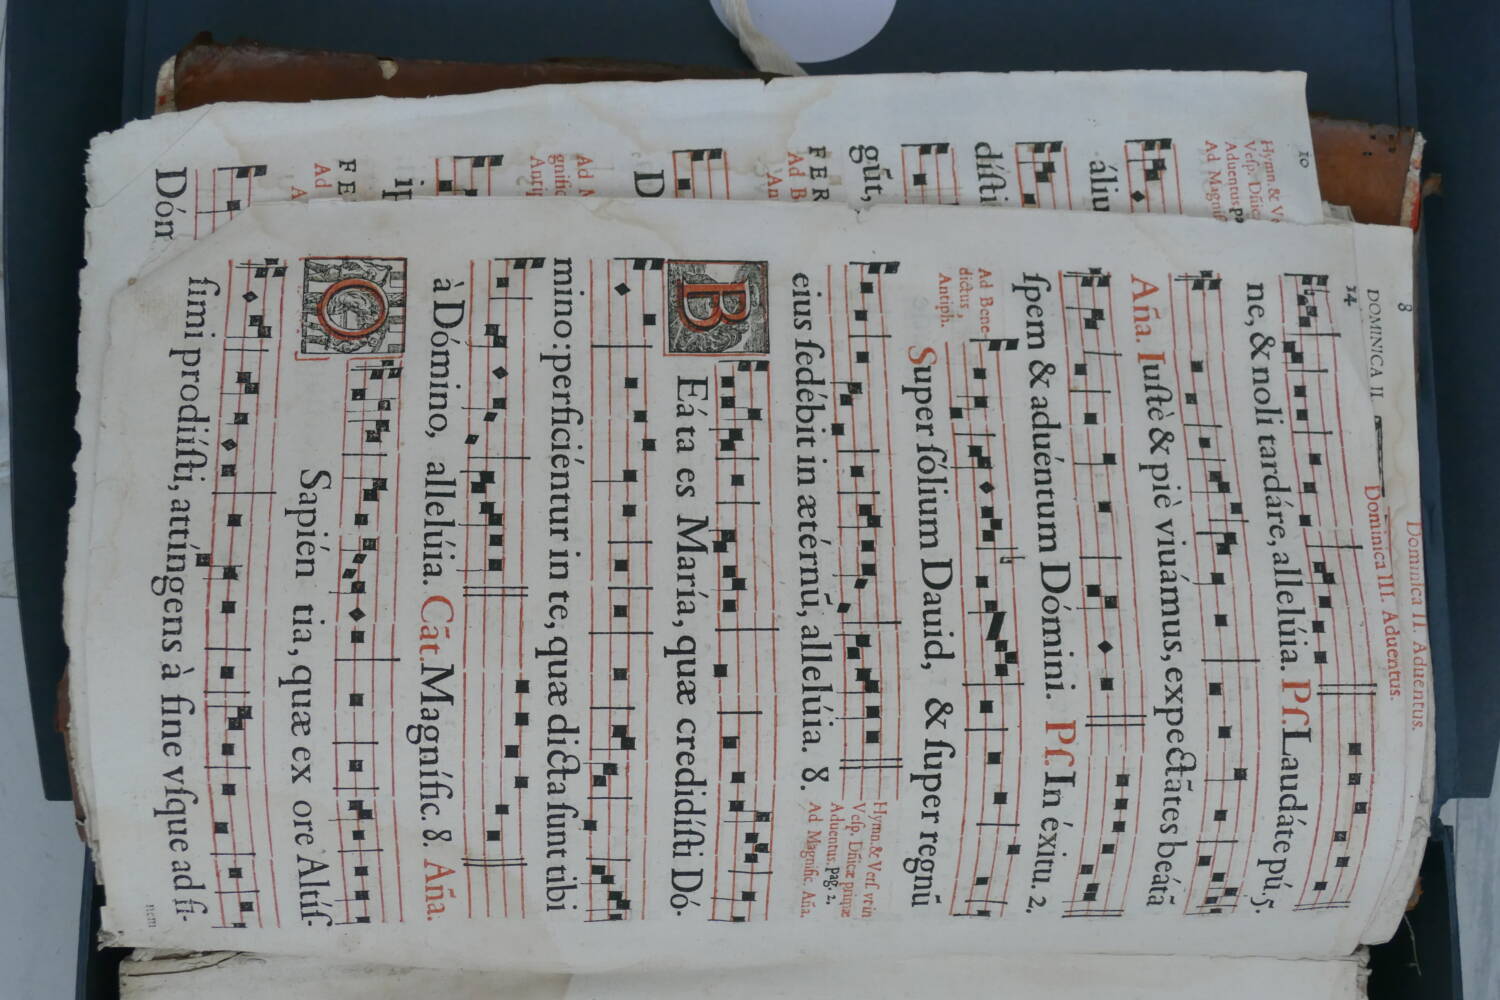 8
DOMINICA II
Dominica II. Aduentus.
14
Dominica III. Aduentus.
ne, & noli tardáre, allelúia. Pſ. Laudáte pú. 5.
Aña. Iuſtè & piè viuámus, expectātes beátā
ſpem & aduéntum Dómini. Pſ. In éxitu. 2.
Ad Bene-
dictus,
Antiph.
Super ſólium Dauid, & ſuper regnū
eius ſedébit in ætérnū, allelúia. 8.
Hymn. & Verſ. vt in
Veſp. Dñicæ primæ
Aduentus. pag. 2.
Ad Magnific. Aña.
BEáta es María, quæ credidíſti Dó-
mino: perficiéntur in te, quæ dicta ſunt tibi
à Dómino, allelúia. Cāt. Magníﬁc. 8. Aña.
O Sapiéntia, quæ ex ore Altíſ-
ſimi prodiíſti, attíngens à fine vſque ad fi-
nem
10
Hymn. & Ve
Veſp. Dñic
Aduentus. p
Ad Magnif
áliu
díſti
gūt,
FER
Ad B
An
D
Ad M
gnific
Ant
ip
FE
Ad
A
Dóm